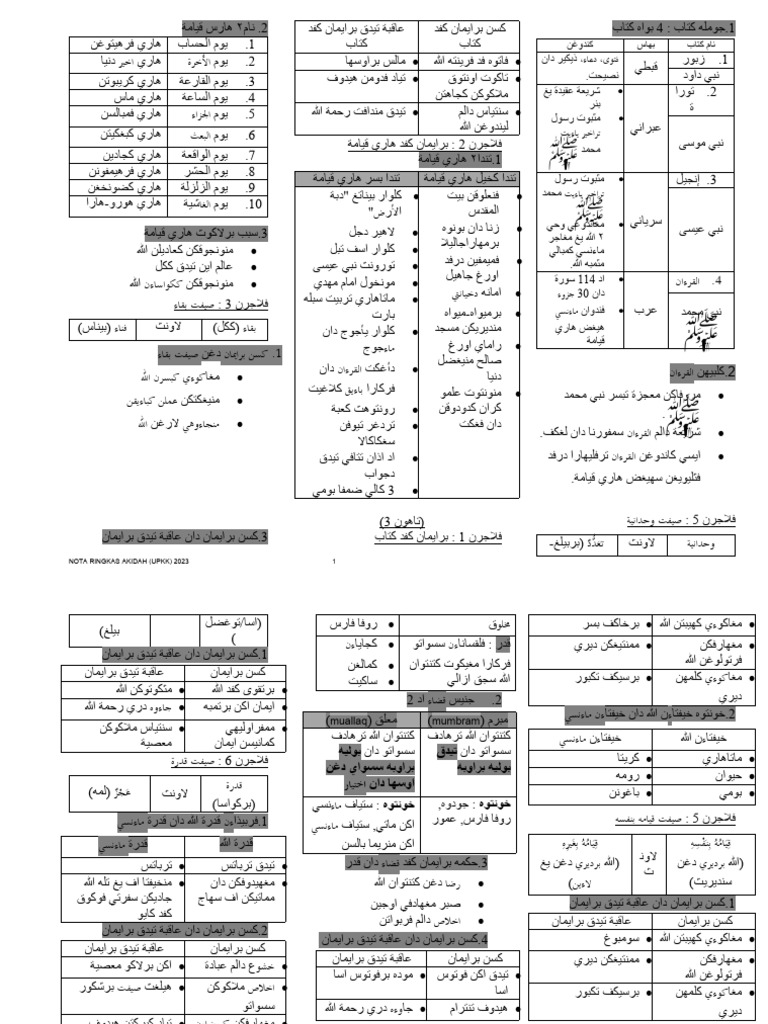 1.جومله كتاب : 4 بواه كتاب
نام كتاب
بهاس
كندوغن
1. زبور
نبي داود
قبطي
فتوى، دعاء، ذيكير دان نصيحت.
2. توراة
نبي موسى
عبراني
شريعة عقيدة يغ بنر
مثبوت رسول تراخير ياءيت محمد ﷺ
3. إنجيل
نبي عيسى
سرياني
مثبوت رسول تراخير ياءيت محمد ﷺ
مڠاندوڠي وحي ٢ الله يغ مغاجر ماءنسي كمبالي مثمبه الله.
4. القرءان
نبي محمد ﷺ
عرب
اد 114 سورة دان 30 جزوء
فندوان ماءنسي هيغض هاري قيامة
2.كلبيهن القرءان
مروفاكن معجزة تبسر نبي محمد ﷺ.
شريعة دالم القرءان سمفورنا دان لغكف.
ايسي كاندوغن القرءان ترفليهارا درفد فثليويغن سهيغض هاري قيامة.
فلاجرن 5 : صيفت وحدانية
وحدانية
لاونث
تعدد (بربيلغ-
كسن برايمان كفد كتاب
عاقبة تيدق برايمان كفد كتاب
فاتوه فد فرينته الله
مالس براوسها
تاكوت اونتوق ملاكوكن كجاهتن
تياد فدومن هيدوف
سنتياس دالم ليندوغن الله
تيدق مندافت رحمة الله
فلاجرن 2 : برايمان كفد هاري قيامة
1.تندا٢ هاري قيامة
تندا كخيل هاري قيامة
تندا بسر هاري قيامة
فنعلوقن بيت المقدس
زنا دان بونوه برمهاراجاليلا
فميمفين درفد اورغ جاهيل
امانه دخيانتي
برميواه-ميواه منديريكن مسجد
راماي اورغ صالح منيغضل دنيا
منونتوت علمو كران كدودوقن دان فغكت
كلوار بيناتغ "دبة الأرض"
لاهير دجل
كلوار اسف تبل
تورونث نبي عيسى
مونخول امام مهدي
ماتاهاري تربيت سبله بارت
كلوار يأجوج دان ماءجوج
دأغكت القرءان دان فركارا باءيق كلاغيت
رونتوهث كعبة
تردغر تيوفن سغكاكالا
اد اذان تتافي تيدق دجواب
3 كالي ضمفا بومي
(تاهون 3)
فلاجرن 1 : برايمان كفد كتاب
2. نام٢ هارس قيامة
1. يوم الحساب هاري فرهيتوغن
2. يوم الأخرة هاري اخير دنيا
3. يوم القارعة هاري كريبوتن
4. يوم الساعة هاري ماس
5. يوم الجزاء هاري فمبالسن
6. يوم البعث هاري كبغكيتن
7. يوم الواقعة هاري كجادين
8. يوم الحشر هاري فرهيمفونن
9. يوم الزلزلة هاري كضونخغن
10. يوم الغاشية هاري هورو-هارا
3.سبب برلاكوث هاري قيامة
منونجوقكن كعاديلن الله
عالم اين تيدق ككل
منونجوقكن ككواساءن الله
فلاجرن 3 : صيفت بقاء
بقاء (ككل)
لاونث
فناء (بيناس)
1. كسن برايمان دغن صيفت بقاء
مغاكوءي كبسرن الله
منيغكتكن عملن كباءيقن
منجاءوهي لارغن الله
3.كسن برايمان دان عاقبة تيدق برايمان
NOTA RINGKAS AKIDAH (UPKK) 2023
1
مغاكوءي كهيبتن الله
برخاكف بسر
مغهارفكن فرتولوغن الله
ممنتيغكن ديري
مغاكوءي كلمهن ديري
برسيكف تكبور
2.خونتوه خيفتاءن الله دان خيفتاءن ماءنسي
خيفتاءن الله
خيفتاءن ماءنسي
ماتاهاري
كريتا
حيوان
رومه
بومي
باغونن
فلاجرن 5 : صيفت قيامه بنفسه
قيامه بنفسه
(الله برديري دغن سنديريث)
لاونث
قيامه بغيره
(الله برديري دغن يغ لاءين)
1.كسن برايمان دان عاقبة تيدق برايمان
كسن برايمان
عاقبة تيدق برايمان
مغاكوءي كهيبتن الله
سومبوغ
مغهارفكن فرتولوغن الله
ممنتيغكن ديري
مغاكوءي كلمهن ديري
برسيكف تكبور
مخلوق
روفا فارس
قدر : فلقساناءن سسواتو فركارا مغيكوت كتنتوان الله سجق ازالي
كجاياءن
كمالغن
ساكيت
2. جنيس قضاء اد 2
مبرم (mumbram)
معلق (muallaq)
كتنتوان الله ترهادف سسواتو دان تيدق بوليه براوبه
كتنتوان الله ترهادف سسواتو دان بوليه براوبه سسواي دغن اوسها دان اختيار
خونتوه : جودوه, روفا فارس, عمور
خونتوه : ستياف ماءنسي اكن ماتي, ستياف ماءنسي اكن منريما بالسن
3.حكمه برايمان كفد قضاء دان قدر
رضا دغن كتنتوان الله
صبر مغهادفي اوجين
اخلاص دالم فربواتن
4.كسن برايمان دان عاقبة تيدق برايمان
كسن برايمان
عاقبة تيدق برايمان
تيدق اكن فوتوس اسا
موده برفوتوس اسا
هيدوف تنترام
جاءوه دري رحمة الله
(اسا/توغضل)
بيلغ)
1.كسن برايمان دان عاقبة تيدق برايمان
كسن برايمان
عاقبة تيدق برايمان
برتقوى كفد الله
مثكوتوكن الله
ايمان اكن برتمبه
جاءوه دري رحمة الله
ممفراوليهي كمانيسن ايمان
سنتياس ملاكوكن معصية
فلاجرن 6 : صيفت قدرة
قدرة (بركواسا)
لاونث
عجز (لمه)
1.فربيذاءن قدرة الله دان قدرة ماءنسي
قدرة الله
قدرة ماءنسي
تيدق ترباتس
ترباتس
مغهيدوفكن دان مماتيكن اف سهاج
منخيفتا اف يغ تله الله جاديكن سفرتي فوكوق كفد كايو
2.كسن برايمان دان عاقبة تيدق برايمان
كسن برايمان
عاقبة تيدق برايمان
خشوع دالم عبادة
اكن برلاكو معصية
اخلاص ملاكوكن سسواتو
هيلغث صيفت برشكور